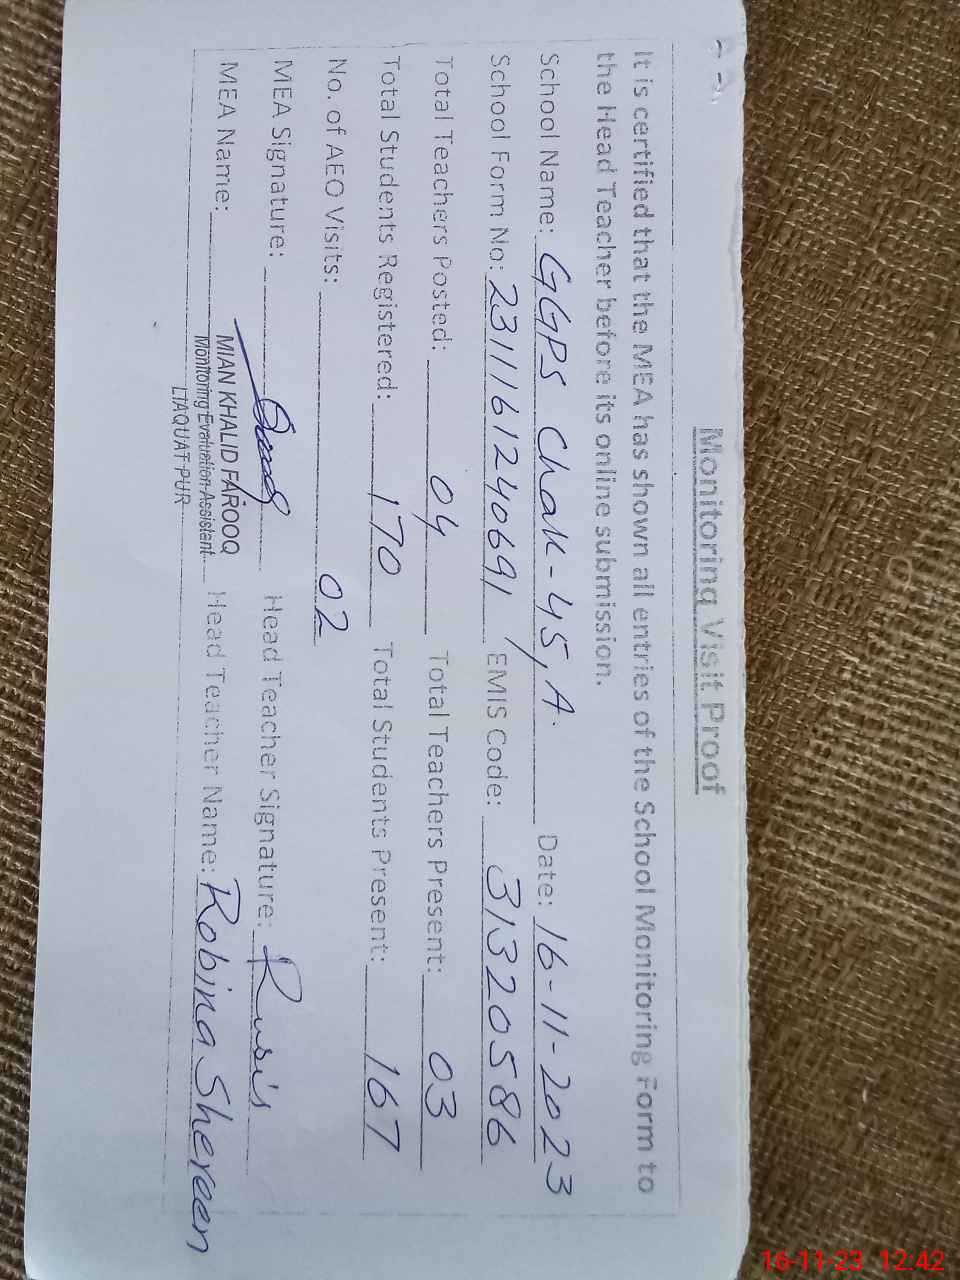 Monitoring Visit Proof
It is certified that the MEA has shown all entries of the School Monitoring Form to
the Head Teacher before its online submission.
School Name: GGPS Chak-45, A. Date: 16-11-2023
School Form No: 231116124069 1 EMIS Code: 31320586
Total Teachers Posted: 04 Total Teachers Present: 03
Total Students Registered: 170 Total Students Present: 167
No. of AEO Visits: 02
MEA Signature: Head Teacher Signature:
MEA Name: MIAN KHALID FAROOQ Head Teacher Name: Robina Shereen
Monitoring Evaluation Assistant
LIAQUAT PUR
16-11-23 12:42